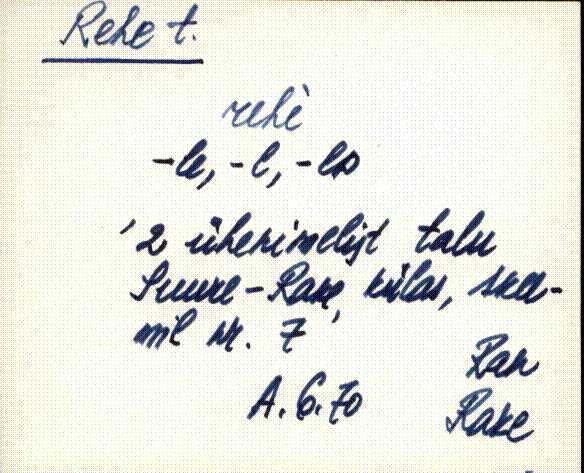 Rehe t.
rehè
-le, -l, -lɒ
'2 ühenimelist talu
Suure-Rake külas, skee-
mil nr. 7'
Ran
A. 6. 70
Rake